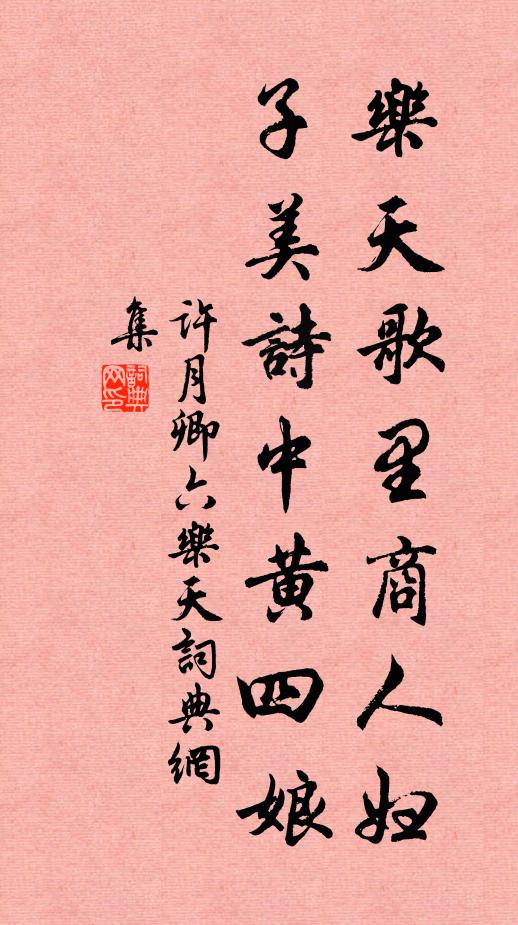 樂天歌里商人妇
子美詩中黄四娘
許月卿六樂天詞典網
集
詞典
网印